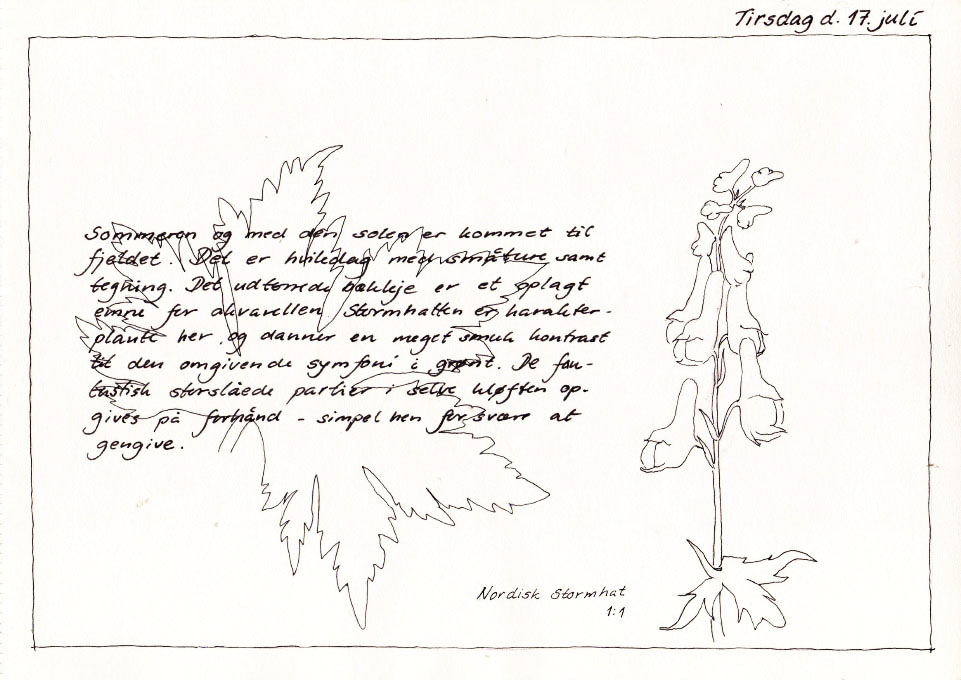 Tirsdag d. 17. juli
Sommeren og med den solen er kommet til
fjeldet. Det er hviledag med småture samt
tegning. Det udtørrede bækleje er et oplagt
emne for akvarellen. Stormhatten er karakter-
plante her og danner en meget smuk kontrast
til den omgivende symfoni i grønt. De fan-
tastisk storslåede partier i selve kløften op-
gives på forhånd - simpelthen for svære at
gengive.
Nordisk Stormhat
1:1